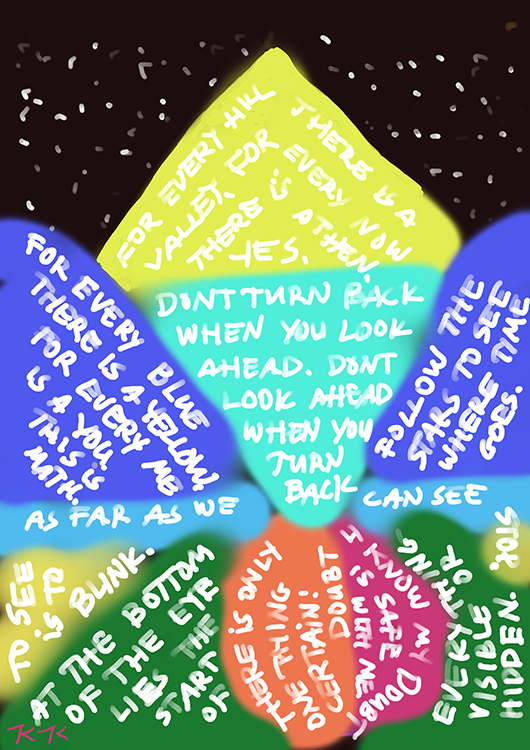 FOR EVERY HILL THERE IS A
VALLEY. FOR EVERY NOW
THERE IS A THEN.
YES.
FOR EVERY BLUE
THERE IS A YELLOW.
FOR EVERY ME
IS A YOU.
THIS IS
MATH.
DONT TURN BACK
WHEN YOU LOOK
AHEAD. DONT
LOOK AHEAD
WHEN YOU
TURN
BACK
FOLLOW THE
STARS TO SEE
WHERE TIME
GOES.
AS FAR AS WE
CAN SEE
TO SEE
IS TO
BLINK.
AT THE BOTTOM
OF THE EYE
LIES THE
START
OF
THERE IS ONLY
ONE THING
CERTAIN:
DOUBT
I KNOW MY DOUBT
IS SAFE
WITH ME.
EVERYTHING
VISIBLE OR
HIDDEN.
KK